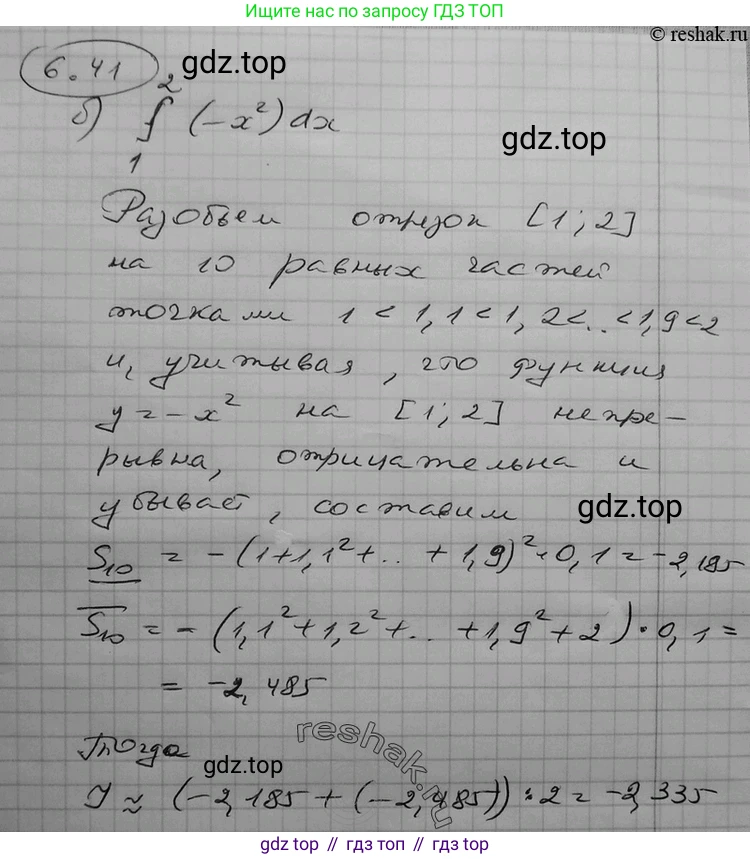 Ищи нас по запросу ГДЗ ТОП
© reshak.ru
6.41
gdz.top
б) ∫₁² (-x²) dx
gdz.top
Разобьем отрезок [1; 2]
на 10 равных частей
точками 1 < 1,1 < 1,2 < .. < 1,9 < 2
и, учитывая, что функция
y = -x² на [1; 2] непре-
рывна, отрицательна и
убывает, составим
gdz.top
S₁₀ = -(1+1,1²+..+1,9)²·0,1 = -2,185
S₁₀ = -(1,1²+1,2²+..+1,9²+2)·0,1 =
= -2,485
reshak.ru
Тогда
gdz.top
Y ≈ (-2,185 + (-2,485)) : 2 = -2,335
gdz.top // gdz.top // gdz.top